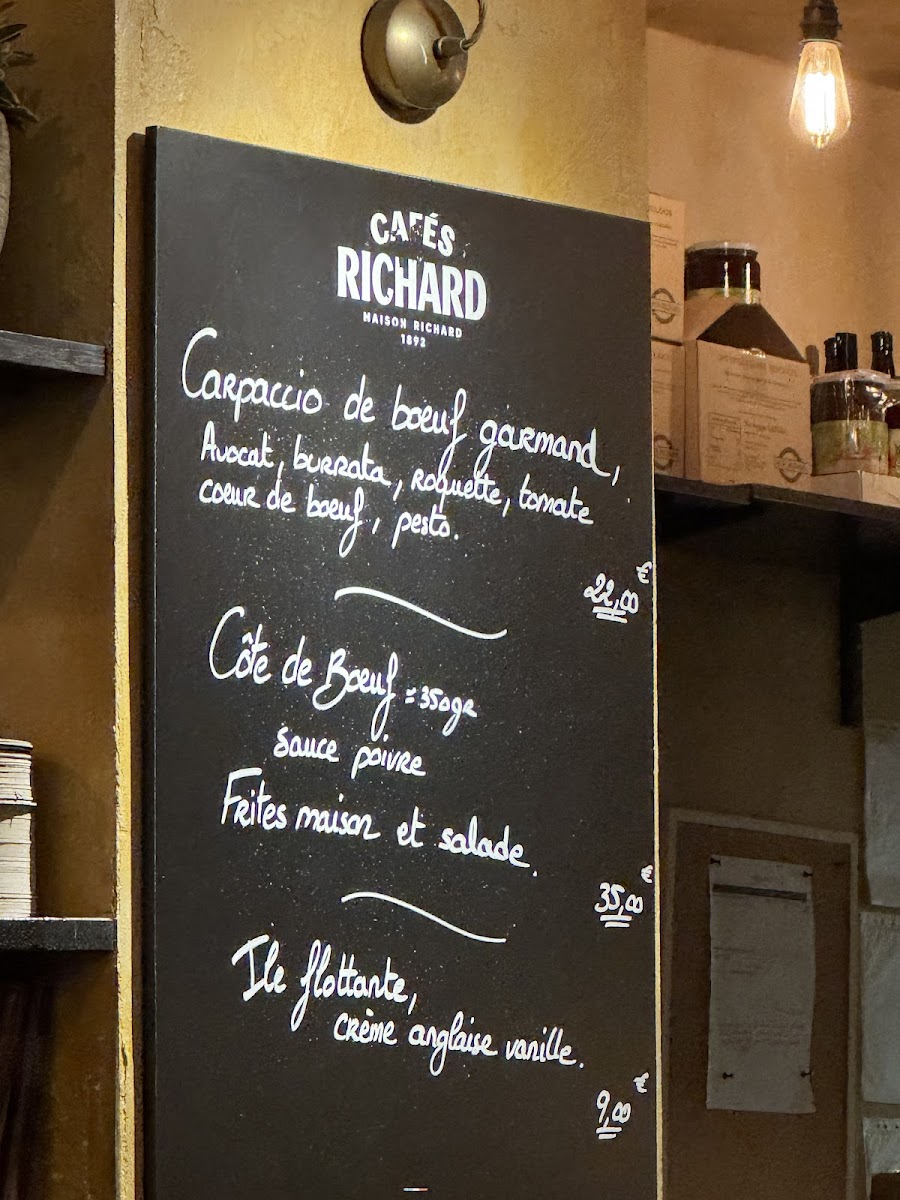 CAFÉS
RICHARD
MAISON RICHARD
1892
Carpaccio de boeuf garmand,
Avocat, burrata, roquette, tomate
coeur de boeuf, pesto.
22,00€
Côte de Boeuf = 350gr
sauce poivre
Frites maison et salade.
35,00€
Ile flottante,
crème anglaise vanille.
9,00€